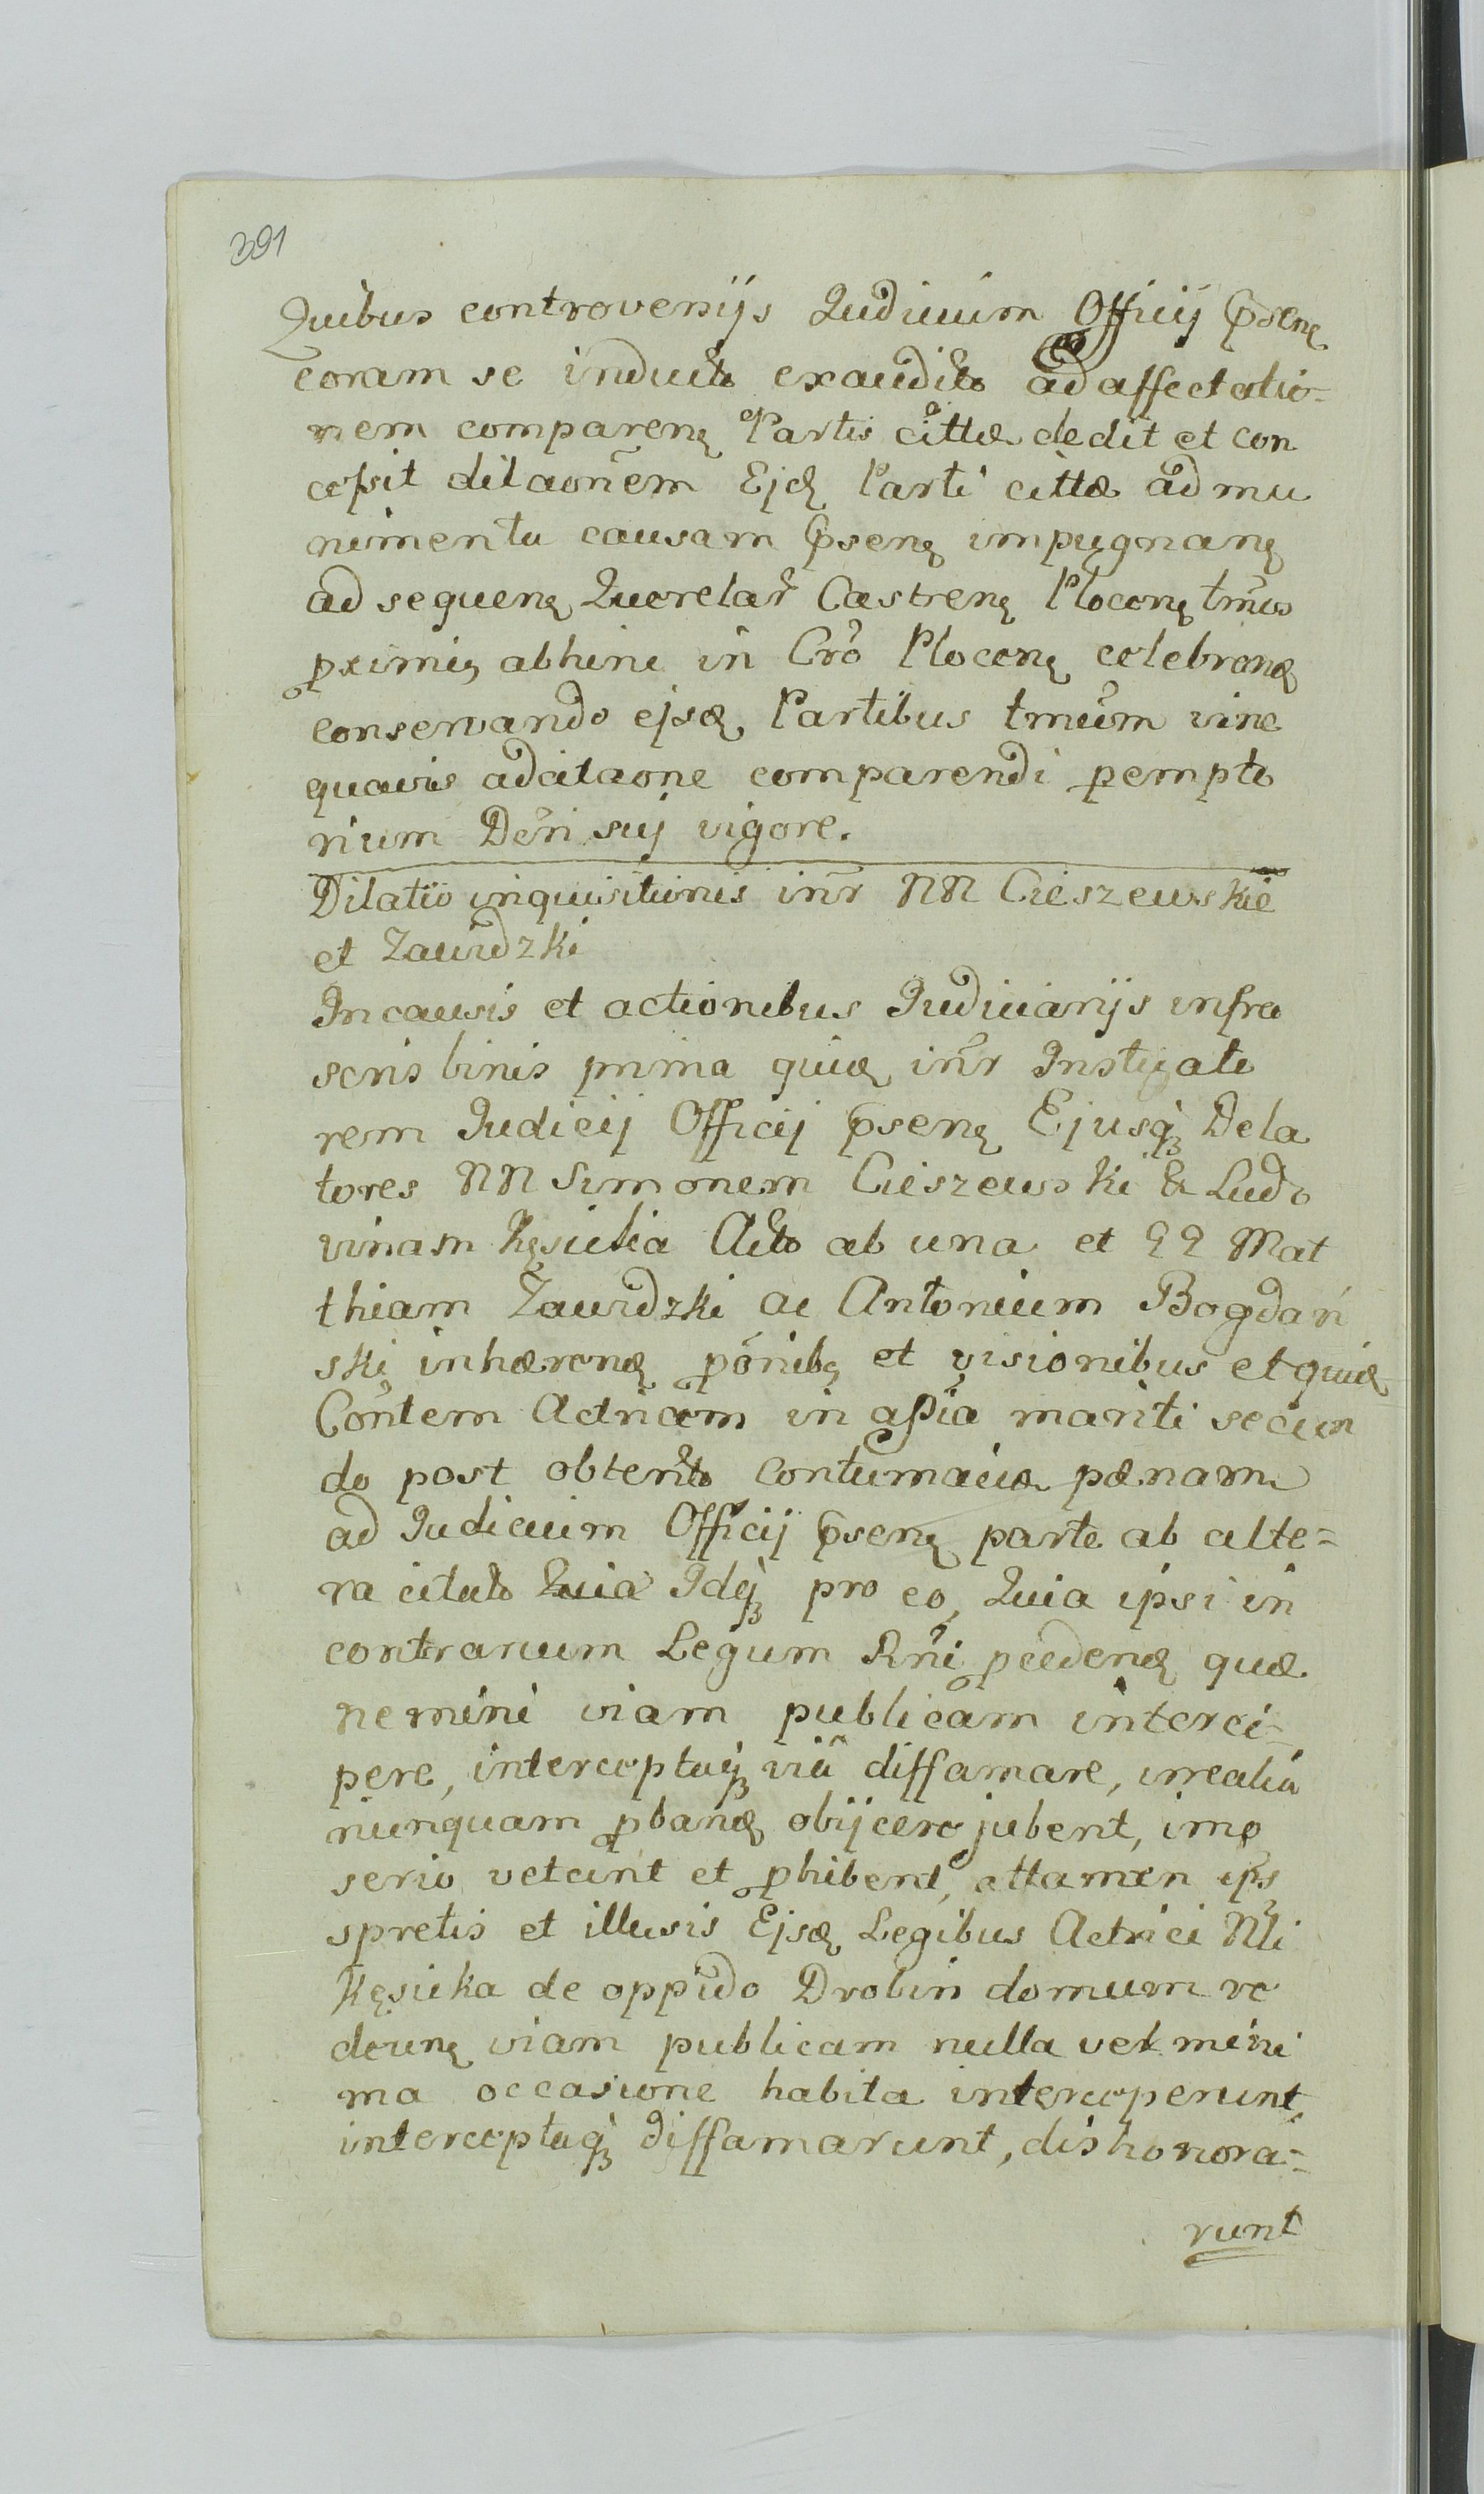 391
Quibus controversijs Judicium Officij p̄senę
coram se induct̄o exaudit̄o ad affectatio=
nem comparenę Partis citt̄æ dedit et con
cessit dilaon̄em Ejd Parti cittæ ad mu
nimenta causam p̄senę impugnanę
ad sequenę Querelar̄ Castrenę Plocenę tm̄os
proximę abhinc in Cr̄o Plocenę celebranę
conservando ejsdę Partibus tm̄um sine
quavis adcitaone comparendi pempto
rium Decn̄ suj vigore.
Dilatio inquisitionis int̄r NN Cieszewskie
et Zawidzki
In causis et actionibus Judiciarijs infra
scris binis prima quidę int̄r Instigato
rem Judicij Officij p̄senę Ejusq̨ Dela
tores NN Simonem Cieszewski & Ludo
vinam Kęsicka Act̄o ab una et GG Mat
thiam Zawidzki ac Antonium Bogdań
ski inhærenę p̄onibę et visionibus et quidę
Con̄tem Actricem in ass̄ia mariti secun
do post obtent̄o contumaciæ pænam
ad Judicium Officij p̄senę parte ab alte=
ra citato Quia Idq̨ pro eo, Quia ipsi in
contrarium Legum Rn̄i p̱cedenę quæ
nemini viam publicam interci=
pere, interceptaq̨ viā diffamare, irrealia
nunquam p̱banę obijcere jubent, imo
serio vetant et p̱hibent, attamen ip̄s
spretis et illusis Ejsdę Legibus Actrici Nl̄i
Kęsicka de oppido Drobin domum re
deunę viam publicam nulla vel mini
ma occasione habita interceperunt,
interceptaq̨ diffamarunt, dishonora=
runt